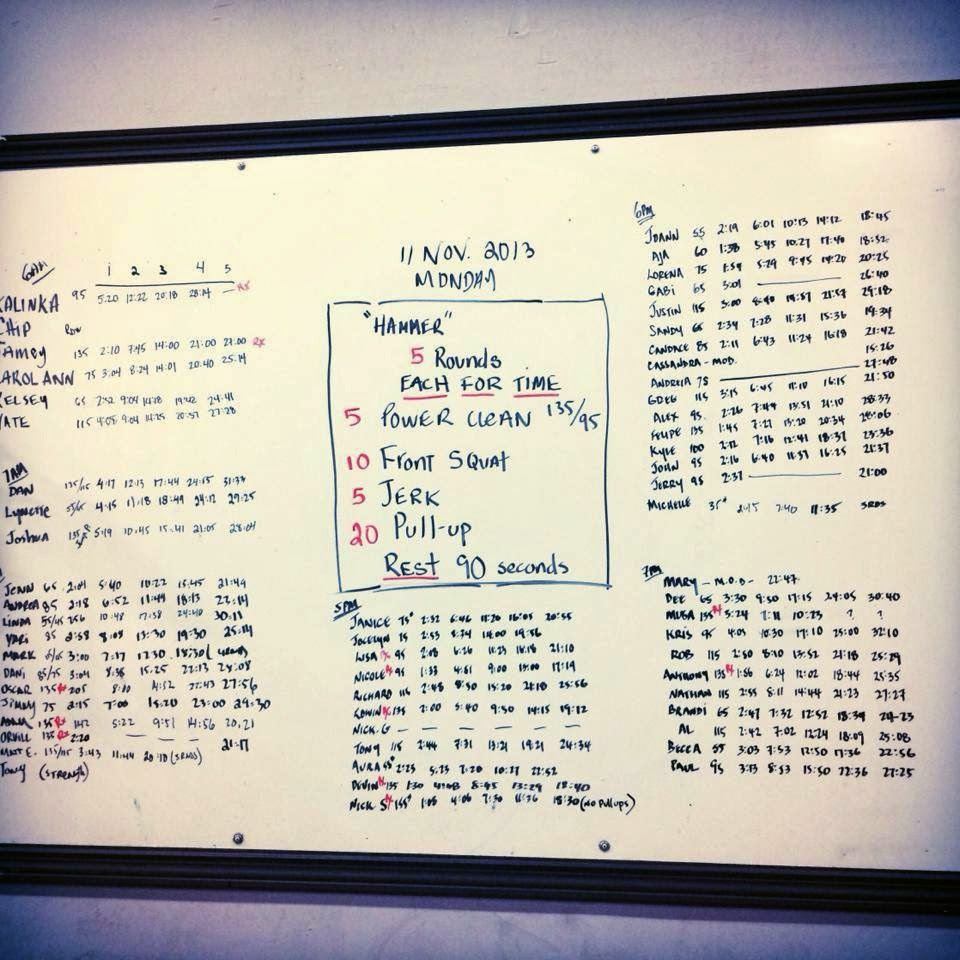 11 NOV. 2013
MONDAY
"HAMMER"
5 Rounds
EACH FOR TIME
5 POWER CLEAN 135/95
10 Front Squat
5 JERK
20 Pull-up
REST 90 seconds
6AM
1 2 3 4 5
KALINKA 95 5:20 12:22 20:18 28:14 — Rx
CHIP Row
JAMEY 135 2:10 7:45 14:00 21:00 27:00 Rx
CAROL ANN 75 3:04 8:24 14:01 20:40 25:14
KELSEY 65 2:52 9:04 19:42 24:41
115 4:08 9:04 14:25 20:57 27:28
7AM
DAN 135/115 4:17 12:13 17:44 24:15 31:37
Lynette 55/65 4:15 11:18 18:49 29:25
Joshua 135 5:19 10:45 15:41 21:05 28:04
JENN 65 2:04 5:40 10:22 15:45 21:49
ANDREA 85 2:18 6:52 11:49 18:13 22:14
LINDA 55/45 10:48 17:58 24:40 30:11
YARI 35 2:58 8:05 13:30 19:30 25:14
MARK 3:00 7:17 12:30 18:30
DANI 85/75 3:04 8:36 15:25 22:13 29:08
OSCAR 135 Rx 205 8:10 27:56
Jimmy 75 2:15 7:00 15:20 23:00 29:30
135 Rx 1:42 5:22 9:51 14:56 20:21
ORVILL 135 Rx 2:20 — — —
MATT E. 135/115 3:43 11:44 20:10 (3 RNDS) 21:17
TONY (STRENGTH)
5PM
JANICE 75# 2:32 6:46 11:20 16:05 20:55
JOCELYN 75 2:53 8:24 14:00 19:56
LISA Rx 95 2:08 6:26 11:23 16:18 21:10
NICOLE Rx 95 1:33 4:61 9:00 13:00 17:19
RICHARD 115 2:48 8:50 15:20 21:18 25:56
EDWIN Rx 135 2:00 5:40 9:50 14:15 19:12
NICK.G — — — — —
TONY 115 2:44 7:31 13:21 19:21 24:34
AURA 55# 2:23 5:23 7:20 10:27 22:52
DEVIN Rx 135 1:30 8:45 13:29 18:40
NICK S Rx 135# 1:08 4:06 7:30 11:36 18:30 (NO PULLUPS)
6PM
JOANN 55 2:19 6:01 10:13 14:12 18:45
AJA 60 1:38 5:45 10:27 17:40 18:52
LORENA 75 1:54 5:29 9:45 14:20 20:25
GABI 65 3:01 — 26:40
JUSTIN 115 3:00 8:40 14:57 21:57 29:18
SANDY 65 2:34 7:28 11:31 15:36 19:34
CANDACE 85 2:11 6:43 11:24 16:18 21:42
CASSANDRA - MOD. 15:26
ANDREIA 75 — 27:48
GREG 115 3:15 6:45 11:10 16:15 21:50
ALEX 95 2:26 7:44 13:51 21:10 28:33
FELIPE 135 1:45 7:27 13:20 20:34 28:06
KYLE 100 2:12 7:16 12:41 18:37 23:36
JOHN 95 2:16 6:40 11:37 16:25 21:37
JERRY 95 2:37 — 21:00
MICHELLE 35# 2:45 7:40 11:35 3RDS
7PM
MARY — M.O.D — 22:47
DEE 65 3:30 9:50 17:15 24:05 30:40
MUSA 135 Rx 5:24 7:11 10:23 ? ?
KRIS 95 4:03 10:30 17:10 25:00 32:10
ROB 115 2:50 8:10 13:52 21:18 25:29
ANTHONY 135 Rx 1:56 6:24 12:02 18:44 25:35
NATHAN 115 2:55 8:11 14:44 21:23 27:27
BRANDI 65 2:47 7:32 12:52 18:39 24:23
AL 115 2:42 7:02 12:24 18:09 25:08
BECCA 55 3:03 7:53 12:50 17:36 22:56
PAUL 95 3:13 8:53 15:50 22:36 27:25